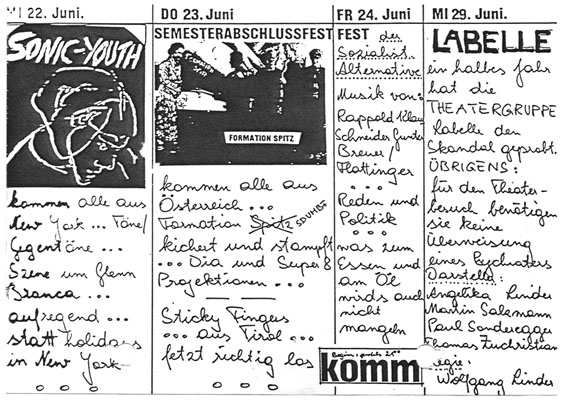 MI 22. Juni.
SONIC-YOUTH
kommen alle aus
New York ... Töne/
Gegentöne ...
Szene um Glenn
Branca ...
aufregend ...
statt holidays
in New York
DO 23. Juni
SEMESTERABSCHLUSSFEST
FORMATION SPITZ
kommen alle aus
Österreich ...
Formation Spitz
kichert und stampft
... Dia und Super 8
Projektionen ...
Sticky Fingers
... aus Tirol ...
fetzt richtig los
FR 24. Juni
FEST der
Sozialist.
Alternative
Musik von:
Rappold Klaus
Schneider Gunter
Breuer/
Plattinger
...
Reden und
Politik ...
was zum
Essen und
am Öl
wirds auch
nicht
mangeln
komm
MI 29. Juni.
LABELLE
ein halbes Jahr
hat die
THEATERGRUPPE
Labelle den
Skandal geprobt.
ÜBRIGENS:
für den Theater-
besuch benötigen
sie keine
Überweisung
eines Psychaters
Darsteller:
Angelika Linder
Martin Salzmann
Paul Sonderegger
Thomas Zuchristian
regie:
Wolfgang Linder